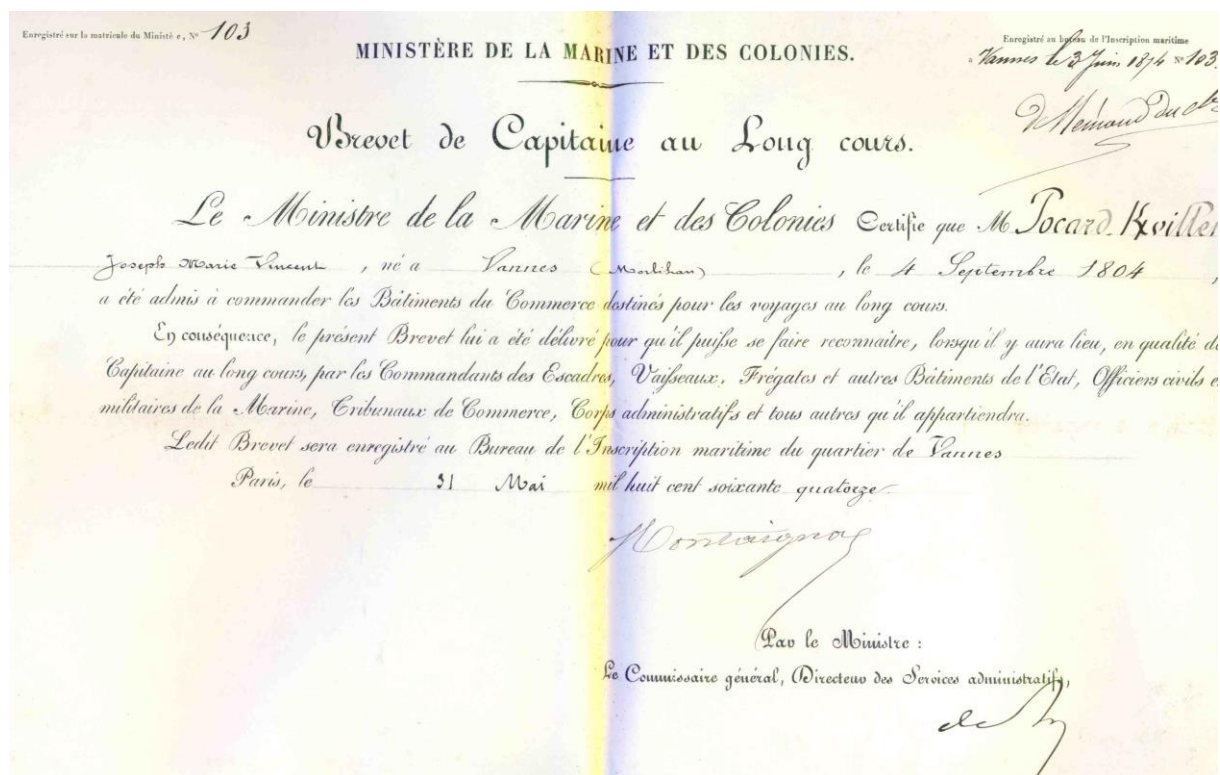 Enregistré sur la matricule du Ministè e, Nº 103
MINISTÈRE DE LA MARINE ET DES COLONIES.
Enregistré au bureau de l'Inscription maritime
a Vannes le 3 Juin 1874 Nº 103.
Brevet de Capitaine au Long cours.
Le Ministre de la Marine et des Colonies Certifie que M. Pocard
Joseph Marie Vincent, né a Vannes (Morbihan), le 4 Septembre 1804,
a été admis à commander les Bâtiments du Commerce destinés pour les voyages au long cours.
En conséquence, le présent Brevet lui a été délivré pour qu'il puisse se faire reconnaître, lorsqu'il y aura lieu, en qualité d
Capitaine au long cours, par les Commandants des Escadres, Vaisseaux, Frégates et autres Bâtiments de l'Etat, Officiers civils e
militaires de la Marine, Tribunaux de Commerce, Corps administratifs et tous autres qu'il appartiendra.
Ledit Brevet sera enregistré au Bureau de l'Inscription maritime du quartier de Vannes
Paris, le 31 Mai mil huit cent soixante quatorze
Montaignac
Par le Ministre :
Le Commissaire général, Directeur des Services administratifs,